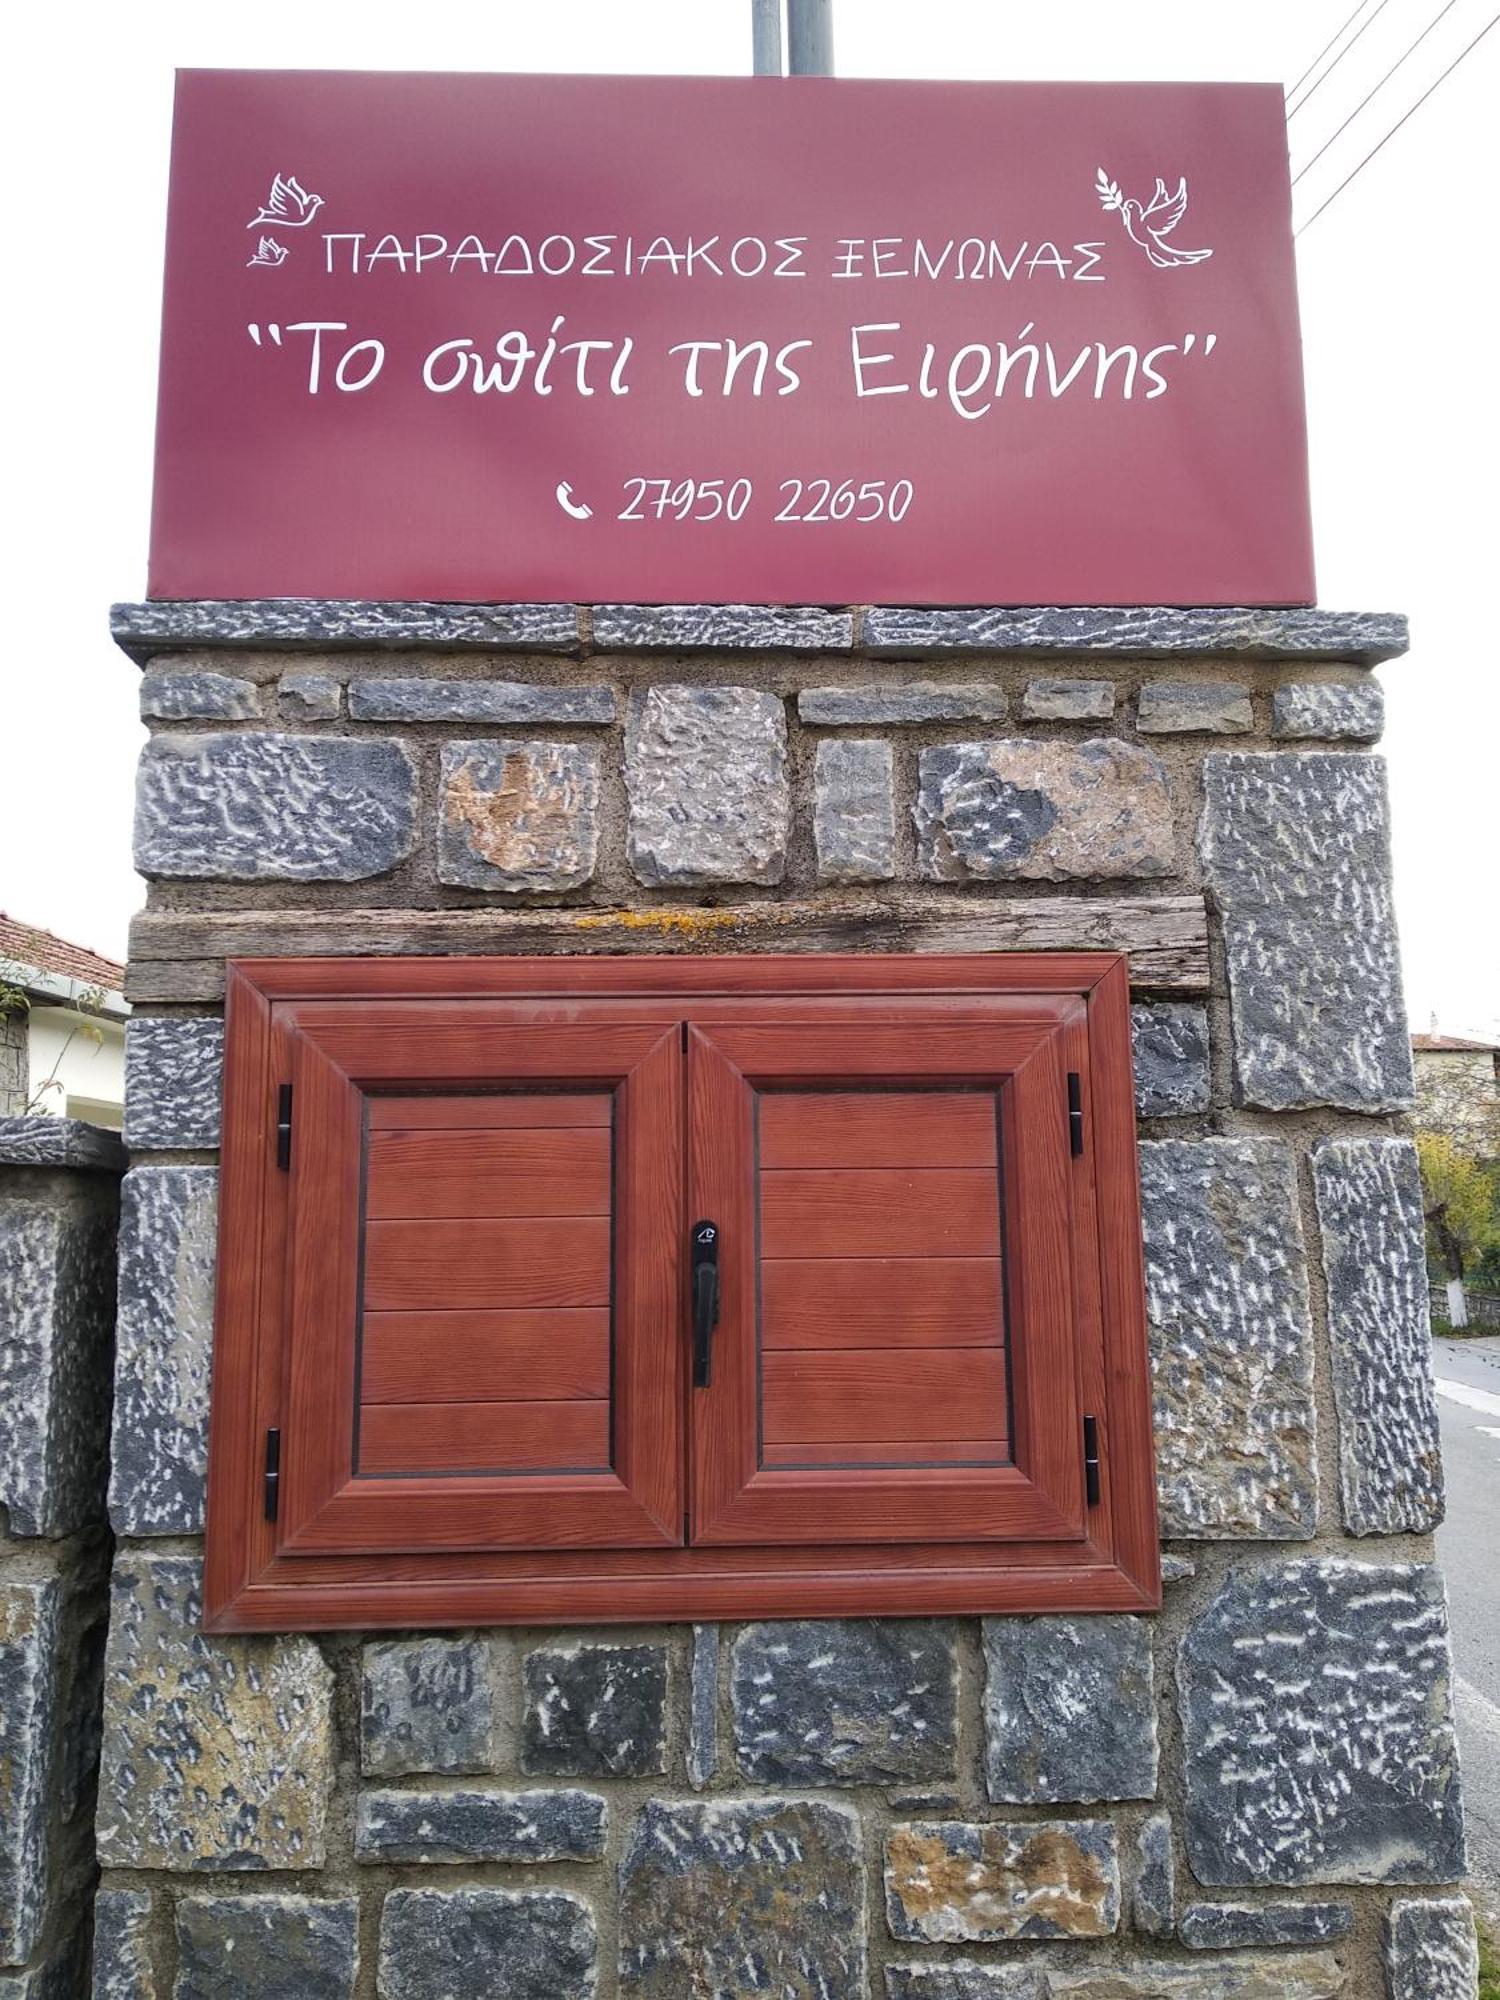 ΠΑΡΑΔΟΣΙΑΚΟΣ ΞΕΝΩΝΑΣ
"Το σπίτι της Ειρήνης"
27950 22650